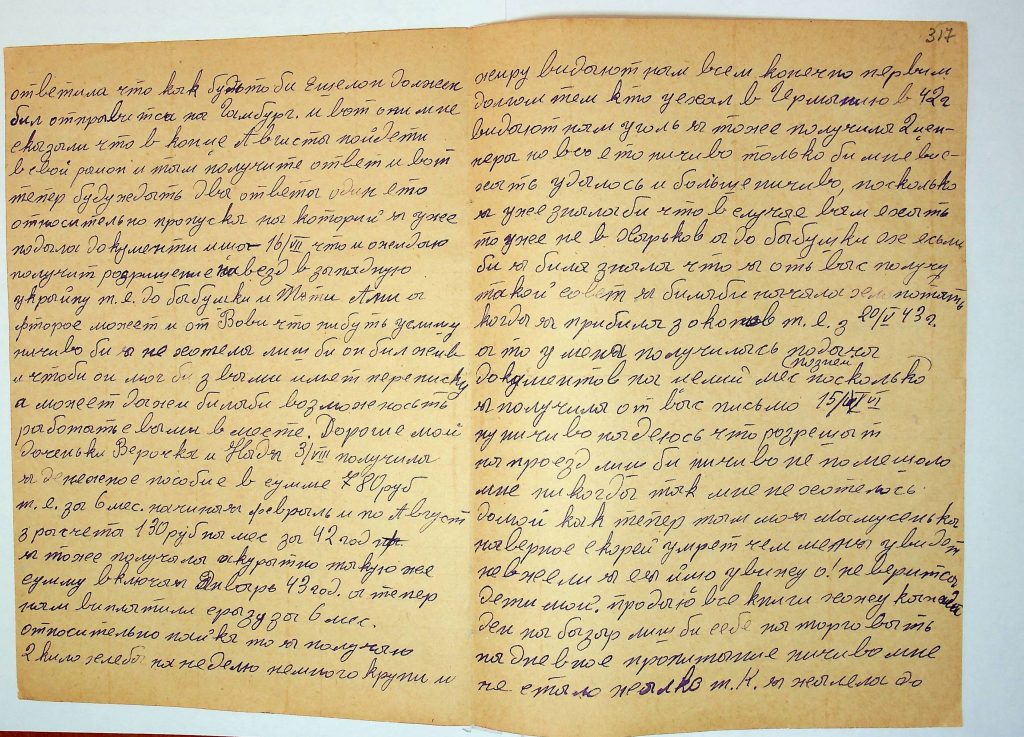 ответила что как будьто би Ешелон должен
бил отправитса на Гамбург. и вот они мне
сказали что в конце Августа пойдети
в свой район и там получите ответ и вот
тепер буду ждать два ответы один ето
относительно пропуска на которий я уже
подала документи 16/VII что и ожидаю
получит розришение на везд в западную
украйну т.е. до бабушки и Тьоти Ани а
фторое может и от Вови что нибуть услишу
ничиво би я не хотела лиш би он бил жив
и чтоби он мог би з вами имет переписку
а может даже билаби возможность
работать с вами в месте. Дорогие мои
доченьки Верочка и Надя 3/VIII получила
я денежное пособие в сумме 780 руб
т.е. за 6 мес. начиная феврыль и по Август
з расчета 130 руб на мес за 42 год
я тоже получала акуратно такую же
сумму включая Январь 43 год. а тепер
нам виплатили сразу за 6 мес.
относительно пайка то я получаю
2 кило хлеба на неделю немного крупи и
317
жиру видают нам всем конечно первим
долгом тем кто уехал в Германию в 42 г
видают нам уголь я тоже получила 2 цен-
нера но всьо ето ничиво только би мне вис-
жать удалось и больше ничиво, посколько
я уже зналаби что в случае вам ехать
то уже не в Харьков а до бабушки ох есьли
би я била знала что я оть вас получу
такой совет я билаби начала хлопотать
когда я прибила з окопов т.е. з 20/V 43 г.
а то у меня получилась подача
позней
документов на целий мес посколько
я получила от вас письмо 15/VI
ну ничиво надеюсь что розрешат
на проезд лиш би ничиво не помешало
мне никогда так мне не хотелось
домой как тепер там моя мамусенька
наверное скорей умрет чем меня увидет
невжели я ейо увижу о! не веритса
дети мои. продаю все книги хожу кажди
ден на базар лиш би себе наторговать
на дневное пропитание ничиво мне
не стало жалко т.К. я жалела до